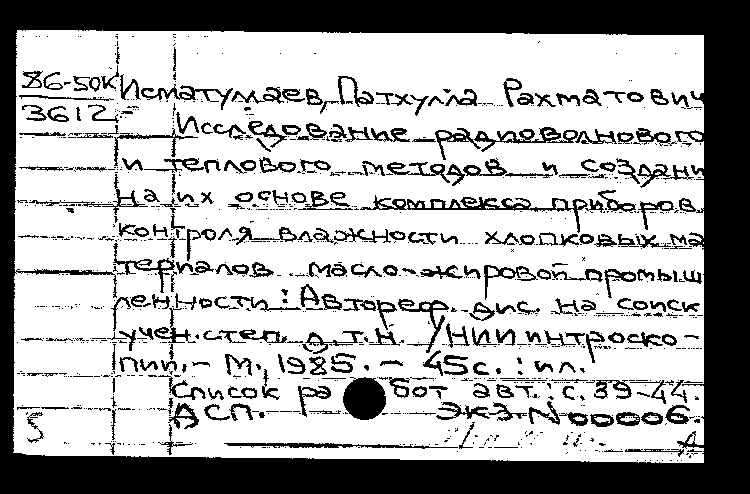 86-50К
3612
Исматуллаев, Патхулла Рахматович
Исследование радиоволнового
и теплового методов и создани
на их основе комплекса приборов
контроля влажности хлопковых ма
териалов масло-жировой промыш
ленности : Автореф. дис. на соиск
учен. степ. д.т.н. /НИИ интроско-
пии. – М., 1985. – 45с. : ил.
Список работ авт.: с. 39-44.
ДСП. Экз. N 00006.
5